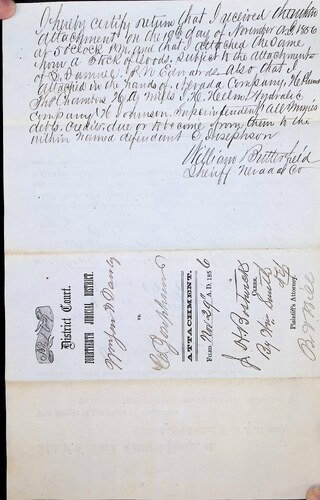 I hereby certify return that I received the within
attachment on the 19th day of November A.D. 1856
at 5 o'clock P.M. and that I attached the same
from a Stock of Goods, subject to the attachments
of D. Samuel, J. W. Edwards also that I
attached in the hands of Nevada Company,
Thos Chambers H. Q. Mills, H. Helm, Hydraulic
Company W. Johnson, Superintendent all monies
debts, credits, due or to become from them to the
within named defendant E. Josephson
William Butterfield
Sheriff Nevada Co
District Court.
FOURTEENTH JUDICIAL DISTRICT.
vs.
E. Josephson
ATTACHMENT.
FILED Nov 29th A.D. 1856
J. H. Bostwick
CLERK.
By
Plaintiff's Attorney.